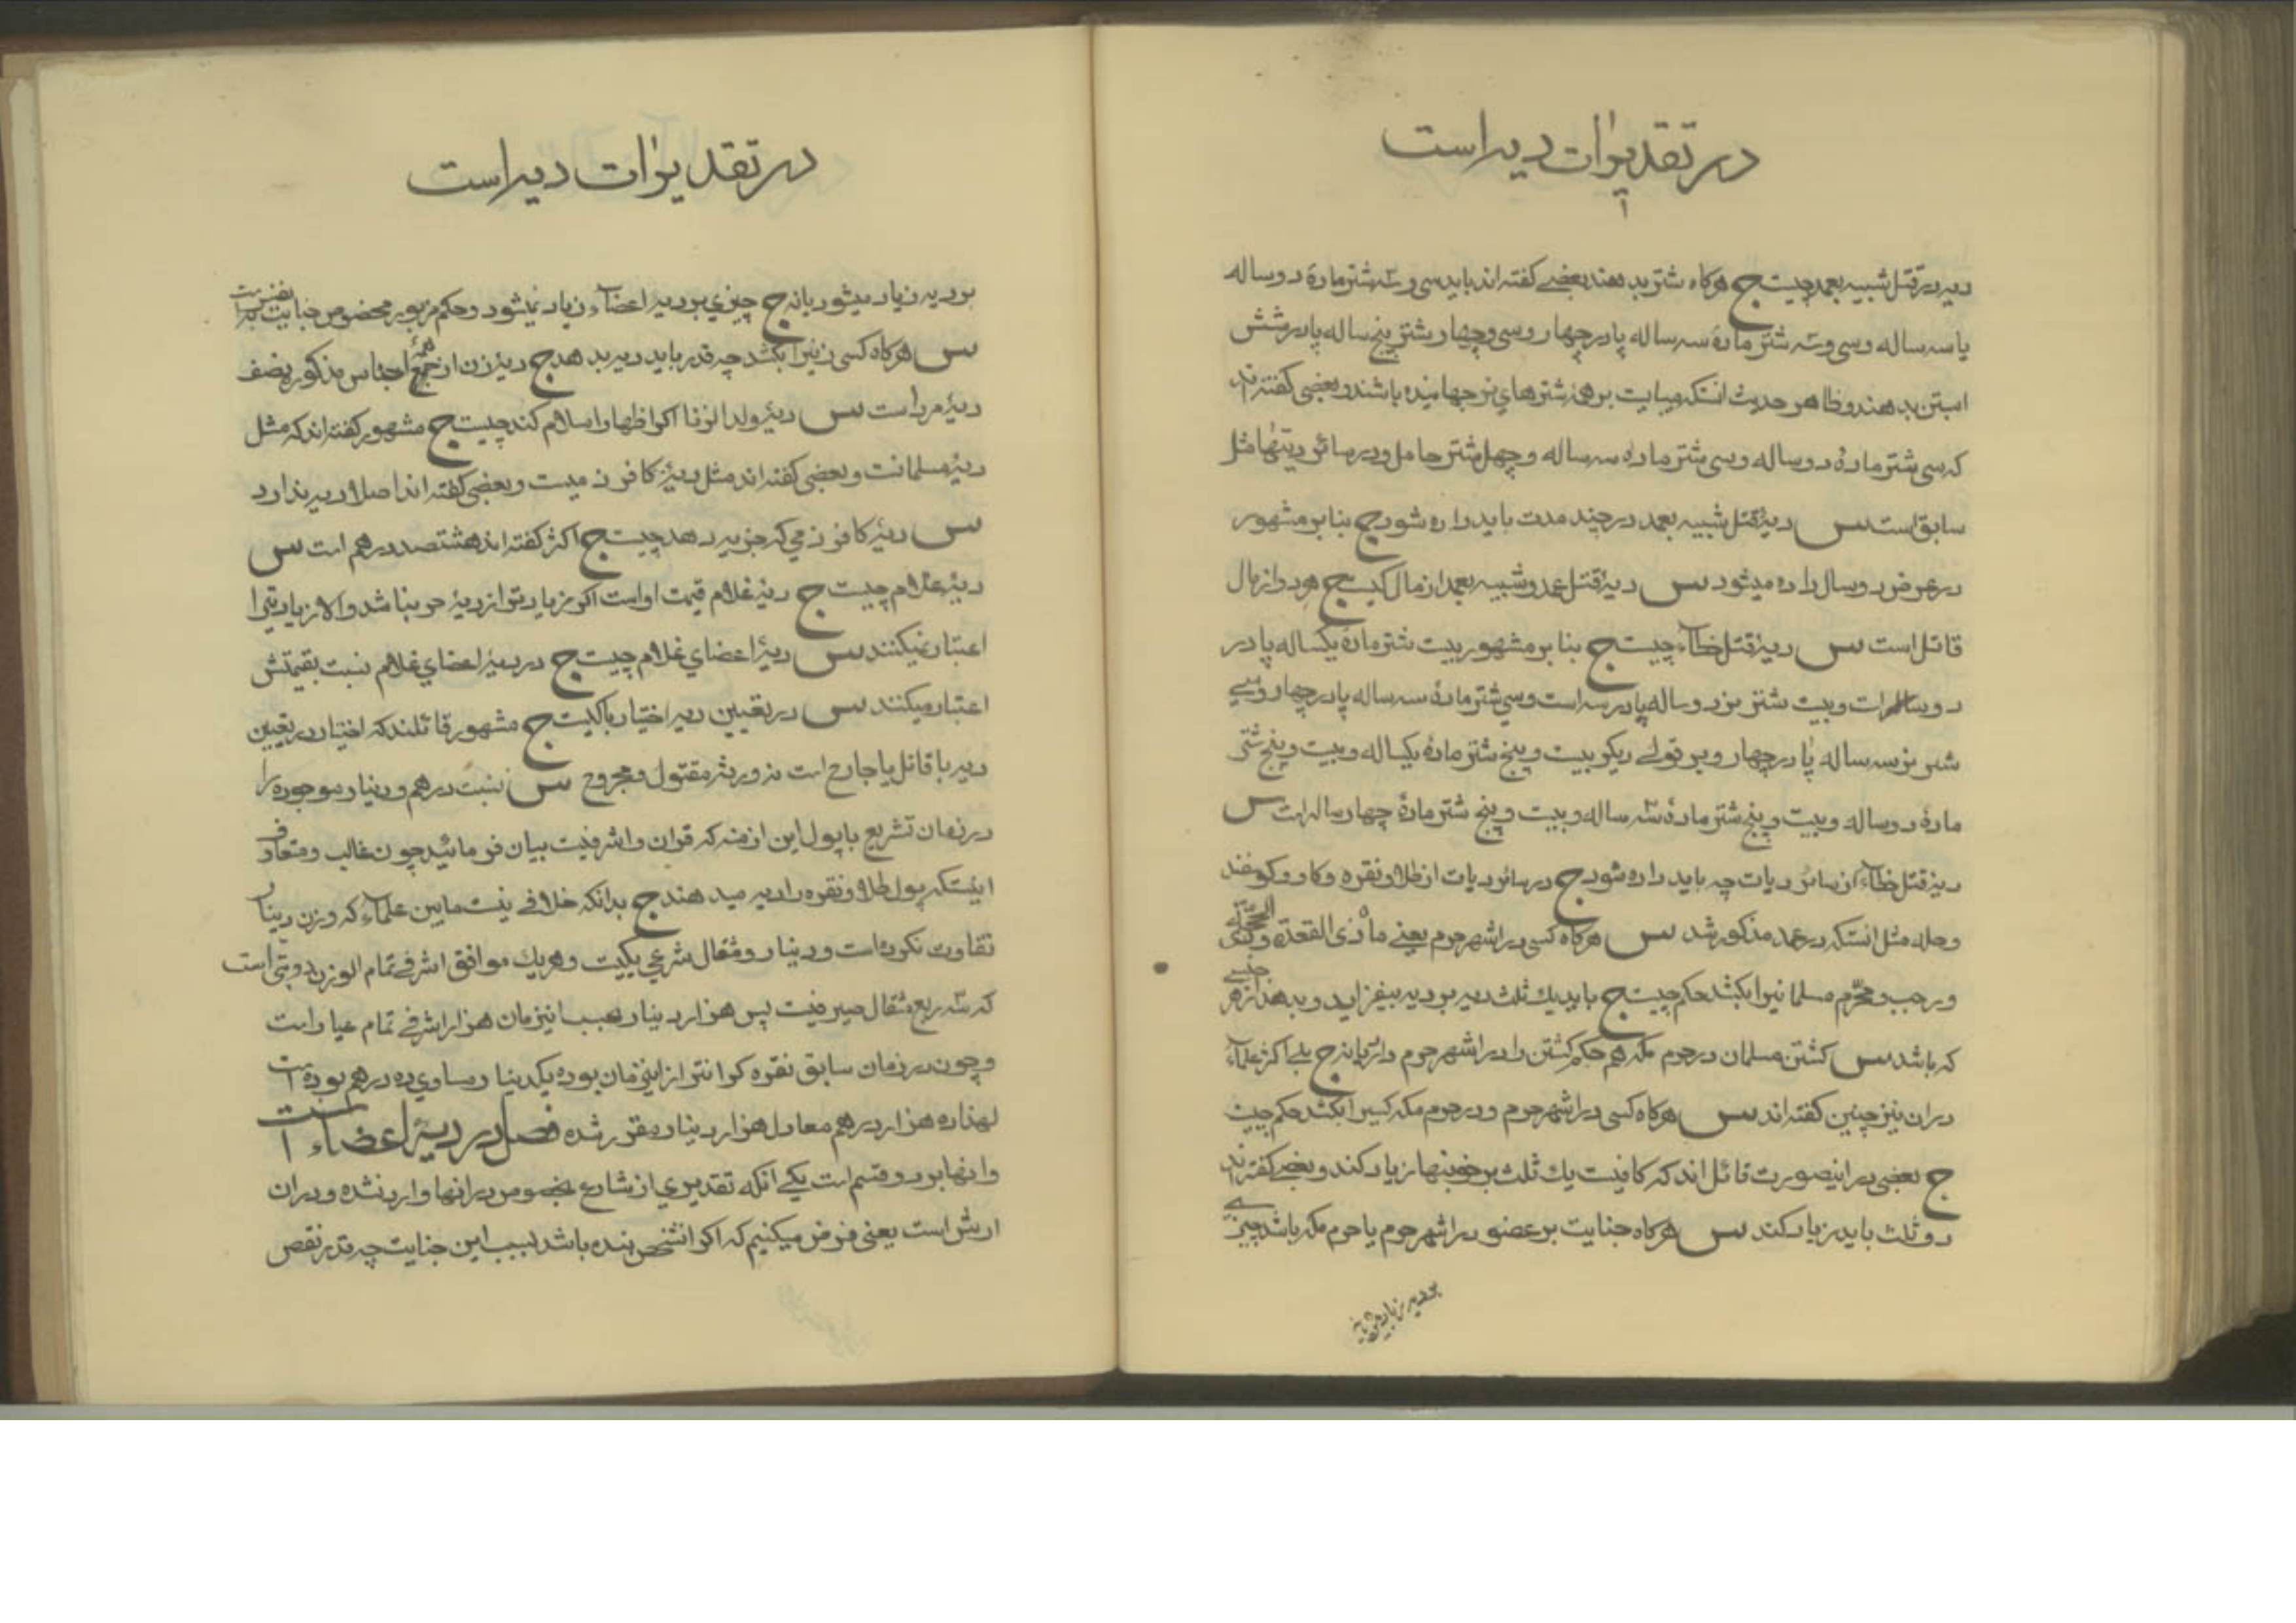 در تقدیرات دیه است
دیه در قتل شبیه بعمد چیست ج هرگاه شتر بدهند بعضے گفته‌اند باید سی و سه شتر مادهٔ دو ساله
یا سه ساله و سی و سه شتر مادهٔ سه ساله پا در چهار و سی و چهار شتر پنج ساله پا در شش
ابستن بدهند و ظاهر حدیث انستکه میبایت بر هر شترهای نر جهانیده باشند و بعضی گفته‌اند
که سی شتر مادهٔ دو ساله و سی شتر ماده سه ساله و چهل شتر حامل و در سائر دیتها مثل
سابق است س دیهٔ قتل شبیه بعمد در چند مدت باید داده شود ج بنا بر مشهور
در عرض دو سال داده میشود س دیهٔ قتل عمد و شبیه بعمد از مال کیست ج هر دو از مال
قاتل است س دیهٔ قتل خطاء چیست ج بنا بر مشهور بیست شتر مادهٔ یکساله پا در
دو ساله است و بیست شتر نر دو ساله پا در سه است و سی شتر مادهٔ سه ساله پا در چهار و سے
شتر نر سه ساله پا در چهار و بر قولے دیکر بیست و پنج شتر مادهٔ یکساله و بیست و پنج شتر
مادهٔ دو ساله و بیست و پنج شتر مادهٔ سه ساله و بیست و پنج شتر مادهٔ چهار ساله است س
دیهٔ قتل خطاء از سائر دیات چه باید داده شود ج در سائر دیات از طلا و نقره و کاو و کوسفند
و حله مثل انستکه در عمد مذکور شد س هرگاه کسی در اشهر حرم یعنے ماه ذی القعده و ذی الحجه
و رجب و محرّم مسلمانیرا بکشد حکم چیست ج باید یك ثلث دیه بر دیه بیفزاید و بدهد از هر جنسے
که باشد س کشتن مسلمان در حرم مکه هم حکم کشتن را در اشهر حرم دارد یا نه ج بلے اکثر علماء
در ان نیز چنین کفته‌اند س هرگاه کسی در اشهر حرم و در حرم مکه کسیرا بکشد حکم چیست
ج بعضی در اینصورت قائل‌اند که کافیست یك ثلث بر خونبها زیاد کند و بعضے کفته‌اند
دو ثلث باید زیاد کند س هرگاه جنایت بر عضو در اشهر حرم یا حرم مکه باشد چیزے
در تقدیرات دیه است
بر دیه زیاد میشود یا نه ج چیزی بر دیه اعضاء زیاد نمیشود و حکم مزبور مخصوص جنایت بر نفس است
س هرگاه کسی زنیرا بکشد چه قدر باید دیه بدهد ج دیهٔ زن از جمیع اجناس مذکوره نصف
دیهٔ مرد است س دیهٔ ولد الزنا اکر اظهار اسلام کند چیست ج مشهور کفته‌اند که مثل
دیهٔ مسلمانست و بعضی کفته‌اند مثل دیهٔ کافر ذمیست و بعضی کفته‌اند اصلا دیه ندارد
س دیهٔ کافر ذمی که جزیه دهد چیست ج اکثر کفته‌اند هشتصد درهم است س
دیهٔ غلام چیست ج دیهٔ غلام قیمت او است اکر زیادتر از دیهٔ حر نباشد و الا زیادتیرا
اعتبار نمیکنند س دیهٔ اعضای غلام چیست ج در دیهٔ اعضای غلام نسبت بقیمتش
اعتبار میکنند س در تعیین دیه اختیار با کیست ج مشهور قائلند که اختیار در تعیین
دیه با قاتل یا جارح است نه ورثهٔ مقتول و مجروح س نسبت درهم و دینار موجوده را
در زمان تشریع با پول این ازمنه که قران و اشرفیست بیان فرمائید چون غالب و متعارف
اینستکه پول طلا و نقره را دیه میدهند ج بدانکه خلافے نیست مابین علماء که وزن دینار
تفاوت نکرده است و دینار و مثقال شرعی یکیست و هریك موافق اشرفے تمام الوزن دوتتی است
که سه ربع مثقال صیرفیست پس هزار دینار بحسب اینزمان هزار اشرفے تمام عیار است
و چون در زمان سابق نقره کرانتر از اینزمان بوده یکدینار مساوی ده درهم بوده است
لهذا ده هزار درهم معادل هزار دینار مقرر شده فصل در دیهٔ اعضاء است
و انها بر دو قسم است یکے انکه تقدیری از شارع بخصوص در انها وارد نشده و در ان
ارش است یعنی فرض میکنیم که اکر انشخص بنده باشد بسبب این جنایت چه قدر نقص